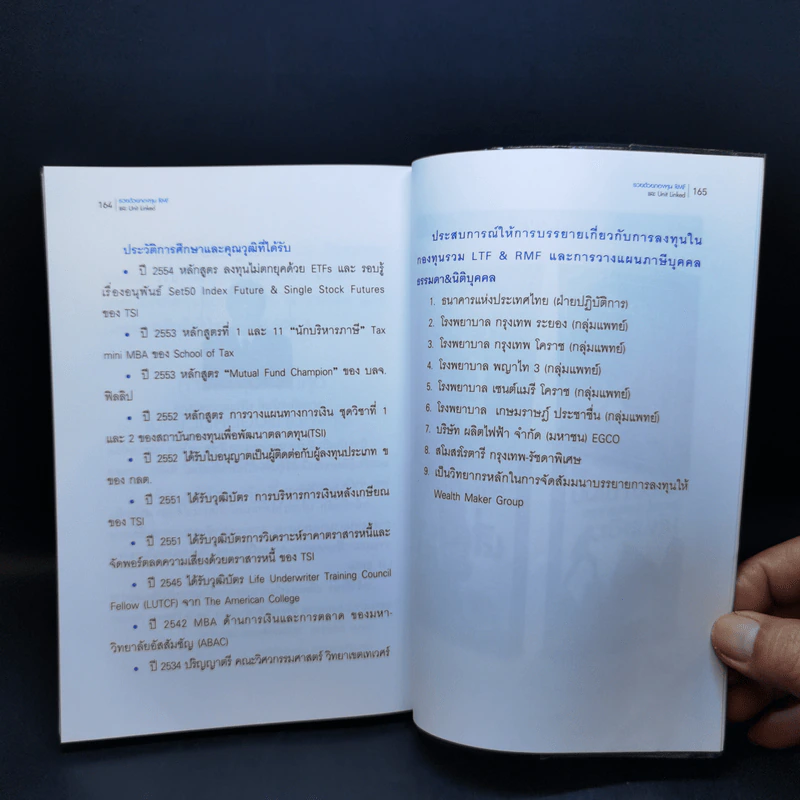 164 รวยด้วยกองทุน RMF
และ Unit Linked
ประวัติการศึกษาและคุณวุฒิที่ได้รับ
• ปี 2554 หลักสูตร ลงทุนไม่ตกยุคด้วย ETFs และ รอบรู้
เรื่องอนุพันธ์ Set50 Index Future & Single Stock Futures
ของ TSI
• ปี 2553 หลักสูตรที่ 1 และ 11 “นักบริหารภาษี” Tax
mini MBA ของ School of Tax
• ปี 2553 หลักสูตร “Mutual Fund Champion” ของ บลจ.
ฟิลลิป
• ปี 2552 หลักสูตร การวางแผนทางการเงิน ชุดวิชาที่ 1
และ 2 ของสถาบันกองทุนเพื่อพัฒนาตลาดทุน(TSI)
• ปี 2552 ได้รับใบอนุญาตเป็นผู้ติดต่อกับผู้ลงทุนประเภท ข
ของ กลต.
• ปี 2551 ได้รับวุฒิบัตร การบริหารการเงินหลังเกษียณ
ของ TSI
• ปี 2551 ได้รับวุฒิบัตรการวิเคราะห์ราคาตราสารหนี้และ
จัดพอร์ตลดความเสี่ยงด้วยตราสารหนี้ ของ TSI
• ปี 2545 ได้รับวุฒิบัตร Life Underwriter Training Council
Fellow (LUTCF) จาก The American College
• ปี 2542 MBA ด้านการเงินและการตลาด ของมหา-
วิทยาลัยอัสสัมชัญ (ABAC)
• ปี 2534 ปริญญาตรี คณะวิศวกรรมศาสตร์ วิทยาเขตเทเวศร์
รวยด้วยกองทุน RMF 165
และ Unit Linked
ประสบการณ์ให้การบรรยายเกี่ยวกับการลงทุนใน
กองทุนรวม LTF & RMF และการวางแผนภาษีบุคคล
ธรรมดา&นิติบุคคล
1. ธนาคารแห่งประเทศไทย (ฝ่ายปฏิบัติการ)
2. โรงพยาบาล กรุงเทพ ระยอง (กลุ่มแพทย์)
3. โรงพยาบาล กรุงเทพ โคราช (กลุ่มแพทย์)
4. โรงพยาบาล พญาไท 3 (กลุ่มแพทย์)
5. โรงพยาบาล เซนต์แมรี่ โคราช (กลุ่มแพทย์)
6. โรงพยาบาล เกษมราษฎร์ ประชาชื่น (กลุ่มแพทย์)
7. บริษัท ผลิตไฟฟ้า จำกัด (มหาชน) EGCO
8. สโมสรโรตารี่ กรุงเทพ-รัชดาพิเศษ
9. เป็นวิทยากรหลักในการจัดสัมมนาบรรยายการลงทุนให้
Wealth Maker Group